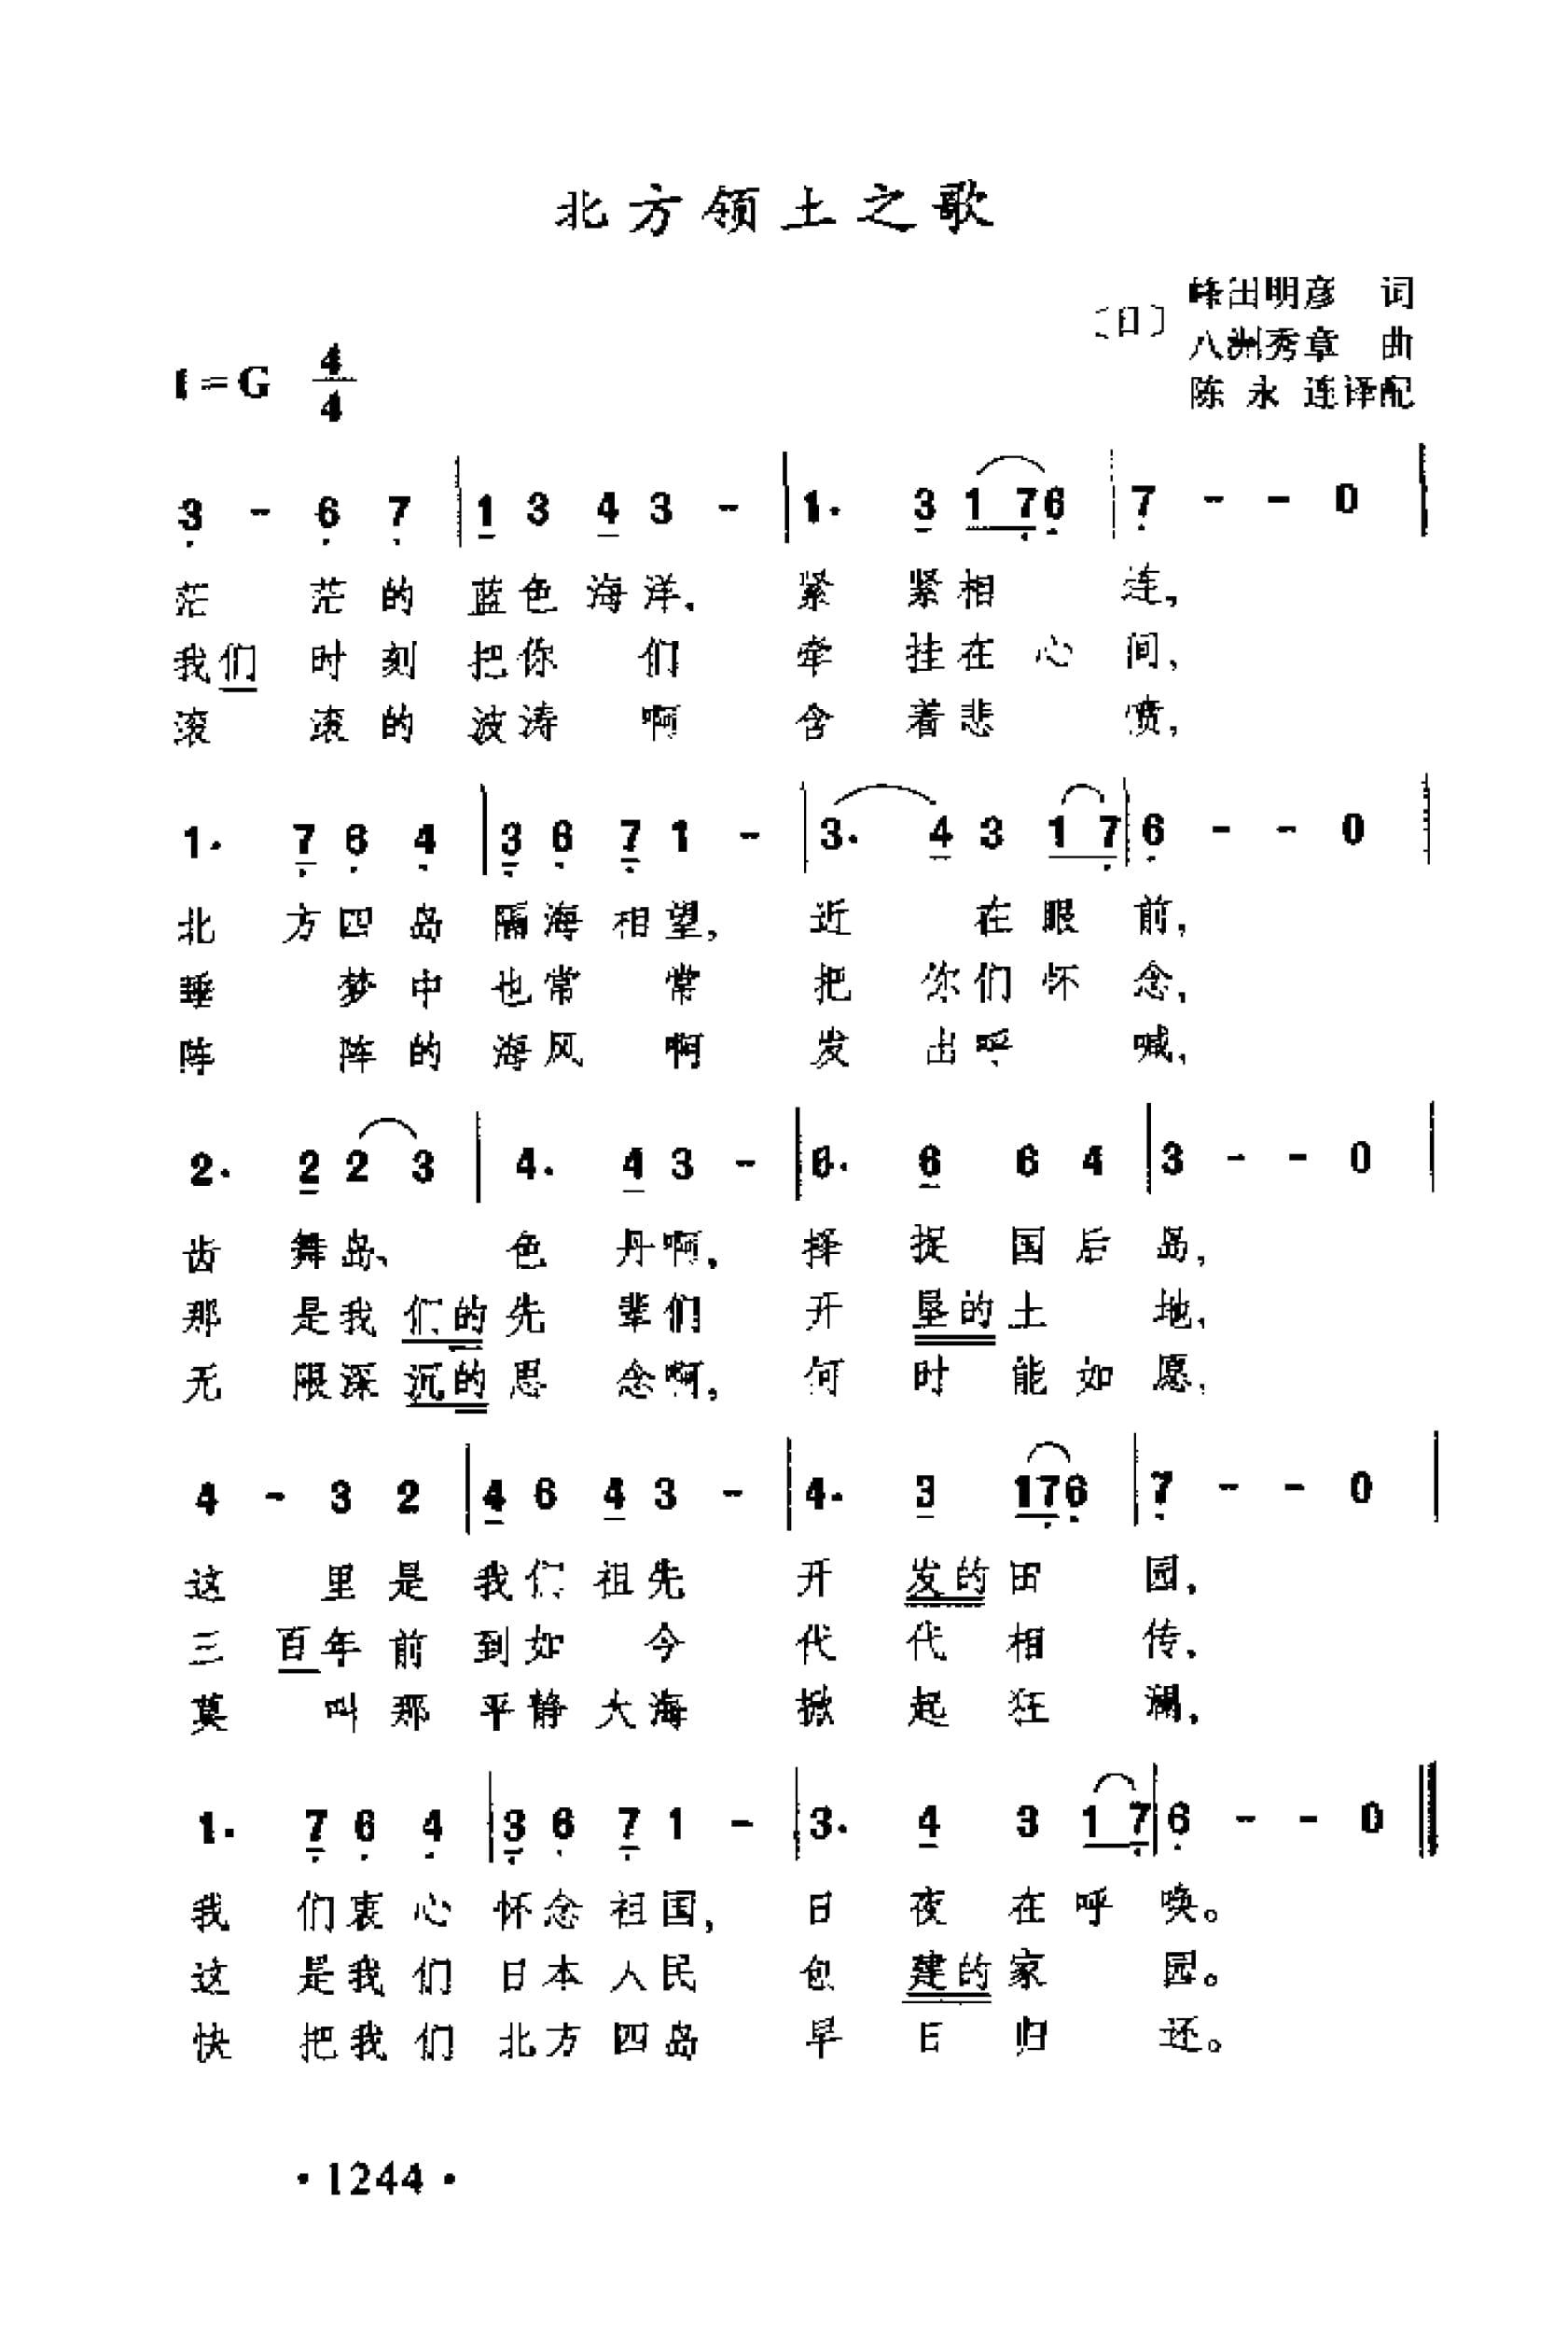 北方领土之歌
〔日〕
峰田明彦 词
八洲秀章 曲
陈永连译配
1=G 4/4
3 - 6 7 | 1 3 4 3 - | 1. 3 1 7 6 | 7 - - 0 |
茫 茫的蓝色海洋, 紧 紧相 连,
我们 时刻把你 们 牵 挂在心 间,
滚 滚的波涛 啊 含 着悲 愤,
1. 7 6 4 | 3 6 7 1 - | 3. 4 3 1 7 | 6 - - 0 |
北 方四岛隔海相望, 近 在眼 前,
睡 梦中也常 常 把 你们怀 念,
阵 阵的海风 啊 发 出呼 喊,
2. 2 2 3 | 4. 4 3 - | 6. 6 6 4 | 3 - - 0 |
齿 舞岛、 色 丹啊, 择 捉 国后岛,
那 是我们的先 辈们 开 垦的土 地,
无 限深沉的思 念啊, 何 时 能如愿,
4 - 3 2 | 4 6 4 3 - | 4. 3 1 7 6 | 7 - - 0 |
这 里是我们祖先 开 发的田 园,
三百年前到如 今 代 代相 传,
莫 叫那平静大海 掀 起狂 澜,
1. 7 6 4 | 3 6 7 1 - | 3. 4 3 1 7 | 6 - - 0 ‖
我 们衷心怀念祖国, 日 夜 在呼唤。
这 是我们日本人民 创 建的家 园。
快 把我们北方四岛 早 日归 还。
·1244·